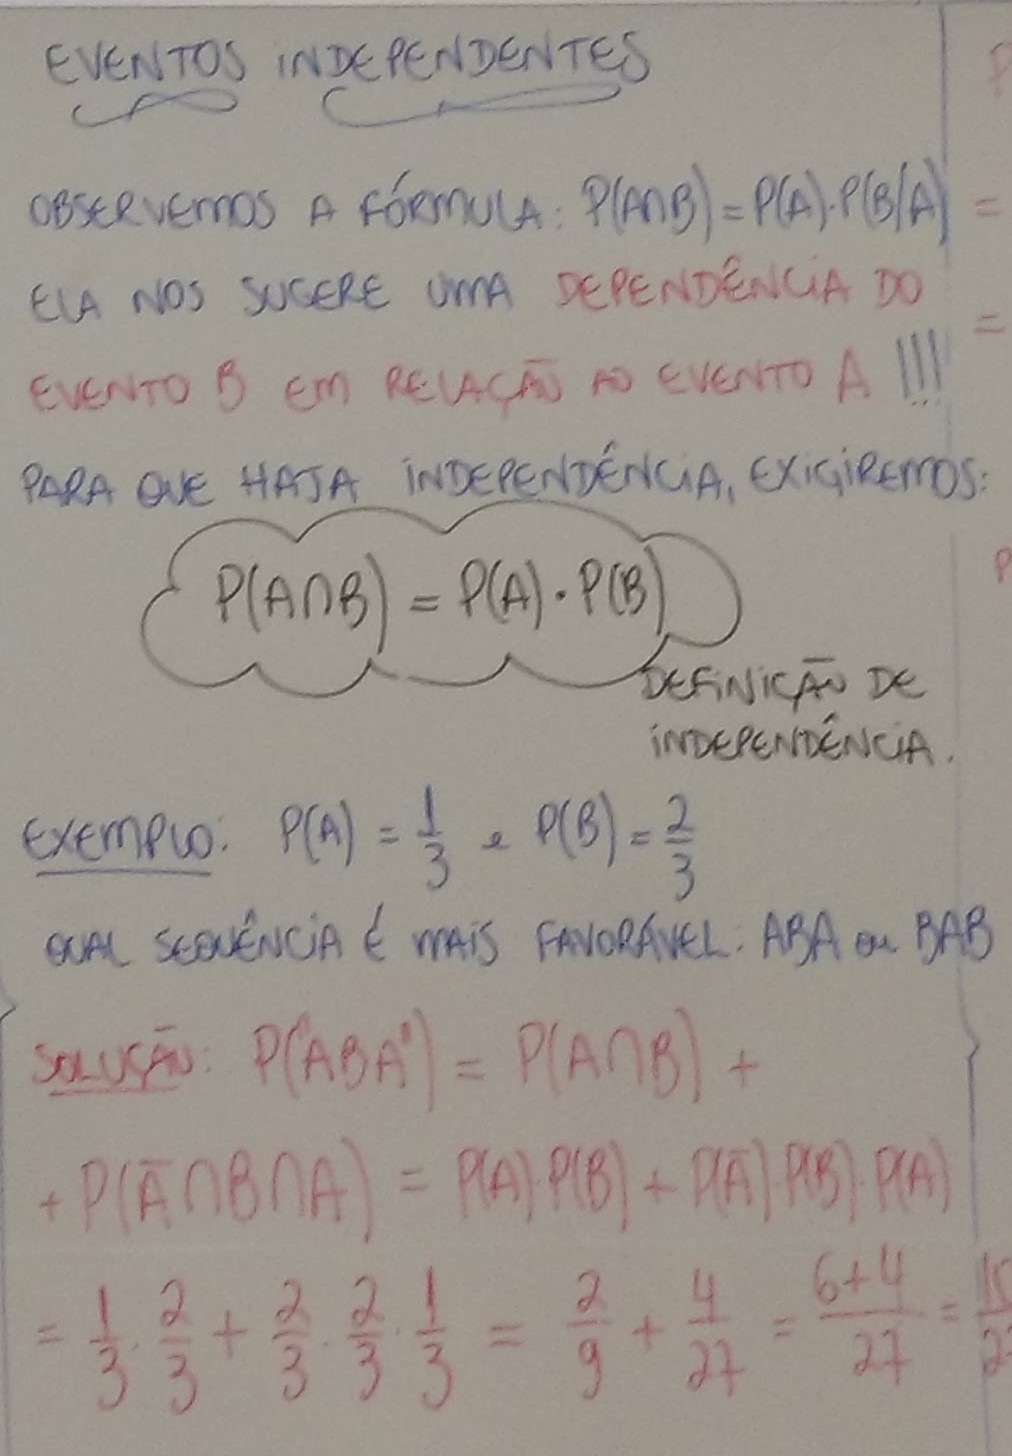 EVENTOS INDEPENDENTES
OBSERVEMOS A FÓRMULA: P(A∩B) = P(A).P(B/A)
ELA NOS SUGERE UMA DEPENDÊNCIA DO
EVENTO B EM RELAÇÃO AO EVENTO A!!!
PARA QUE HAJA INDEPENDÊNCIA, EXIGIREMOS:
P(A∩B) = P(A)·P(B)
DEFINIÇÃO DE
INDEPENDÊNCIA.
EXEMPLO: P(A) = 1/3 e P(B) = 2/3
QUAL SEQUÊNCIA É MAIS FAVORÁVEL: ABA ou BAB
SOLUÇÃO: P("ABA") = P(A∩B) +
+ P(Ā∩B∩A) = P(A).P(B) + P(Ā).P(B).P(A)
= 1/3 . 2/3 + 2/3 . 2/3 . 1/3 = 2/9 + 4/27 = 6+4/27 =